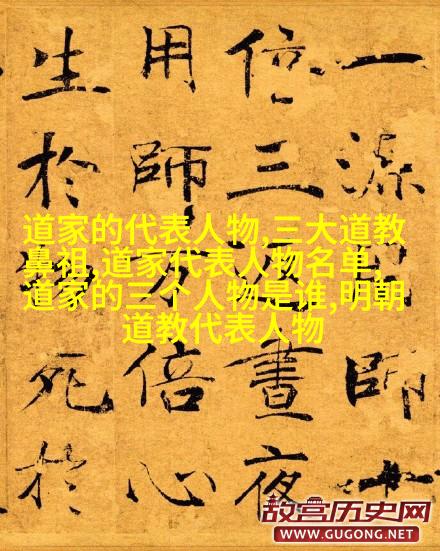 一源師十
倍三晝夜
用師万倍心
生於死於
道家的代表人物,三大道教
鼻祖,道家代表人物名单,
道家的三个人物是谁,明朝
道教代表人物
故宫历史网
WWW.GUGONG.NET